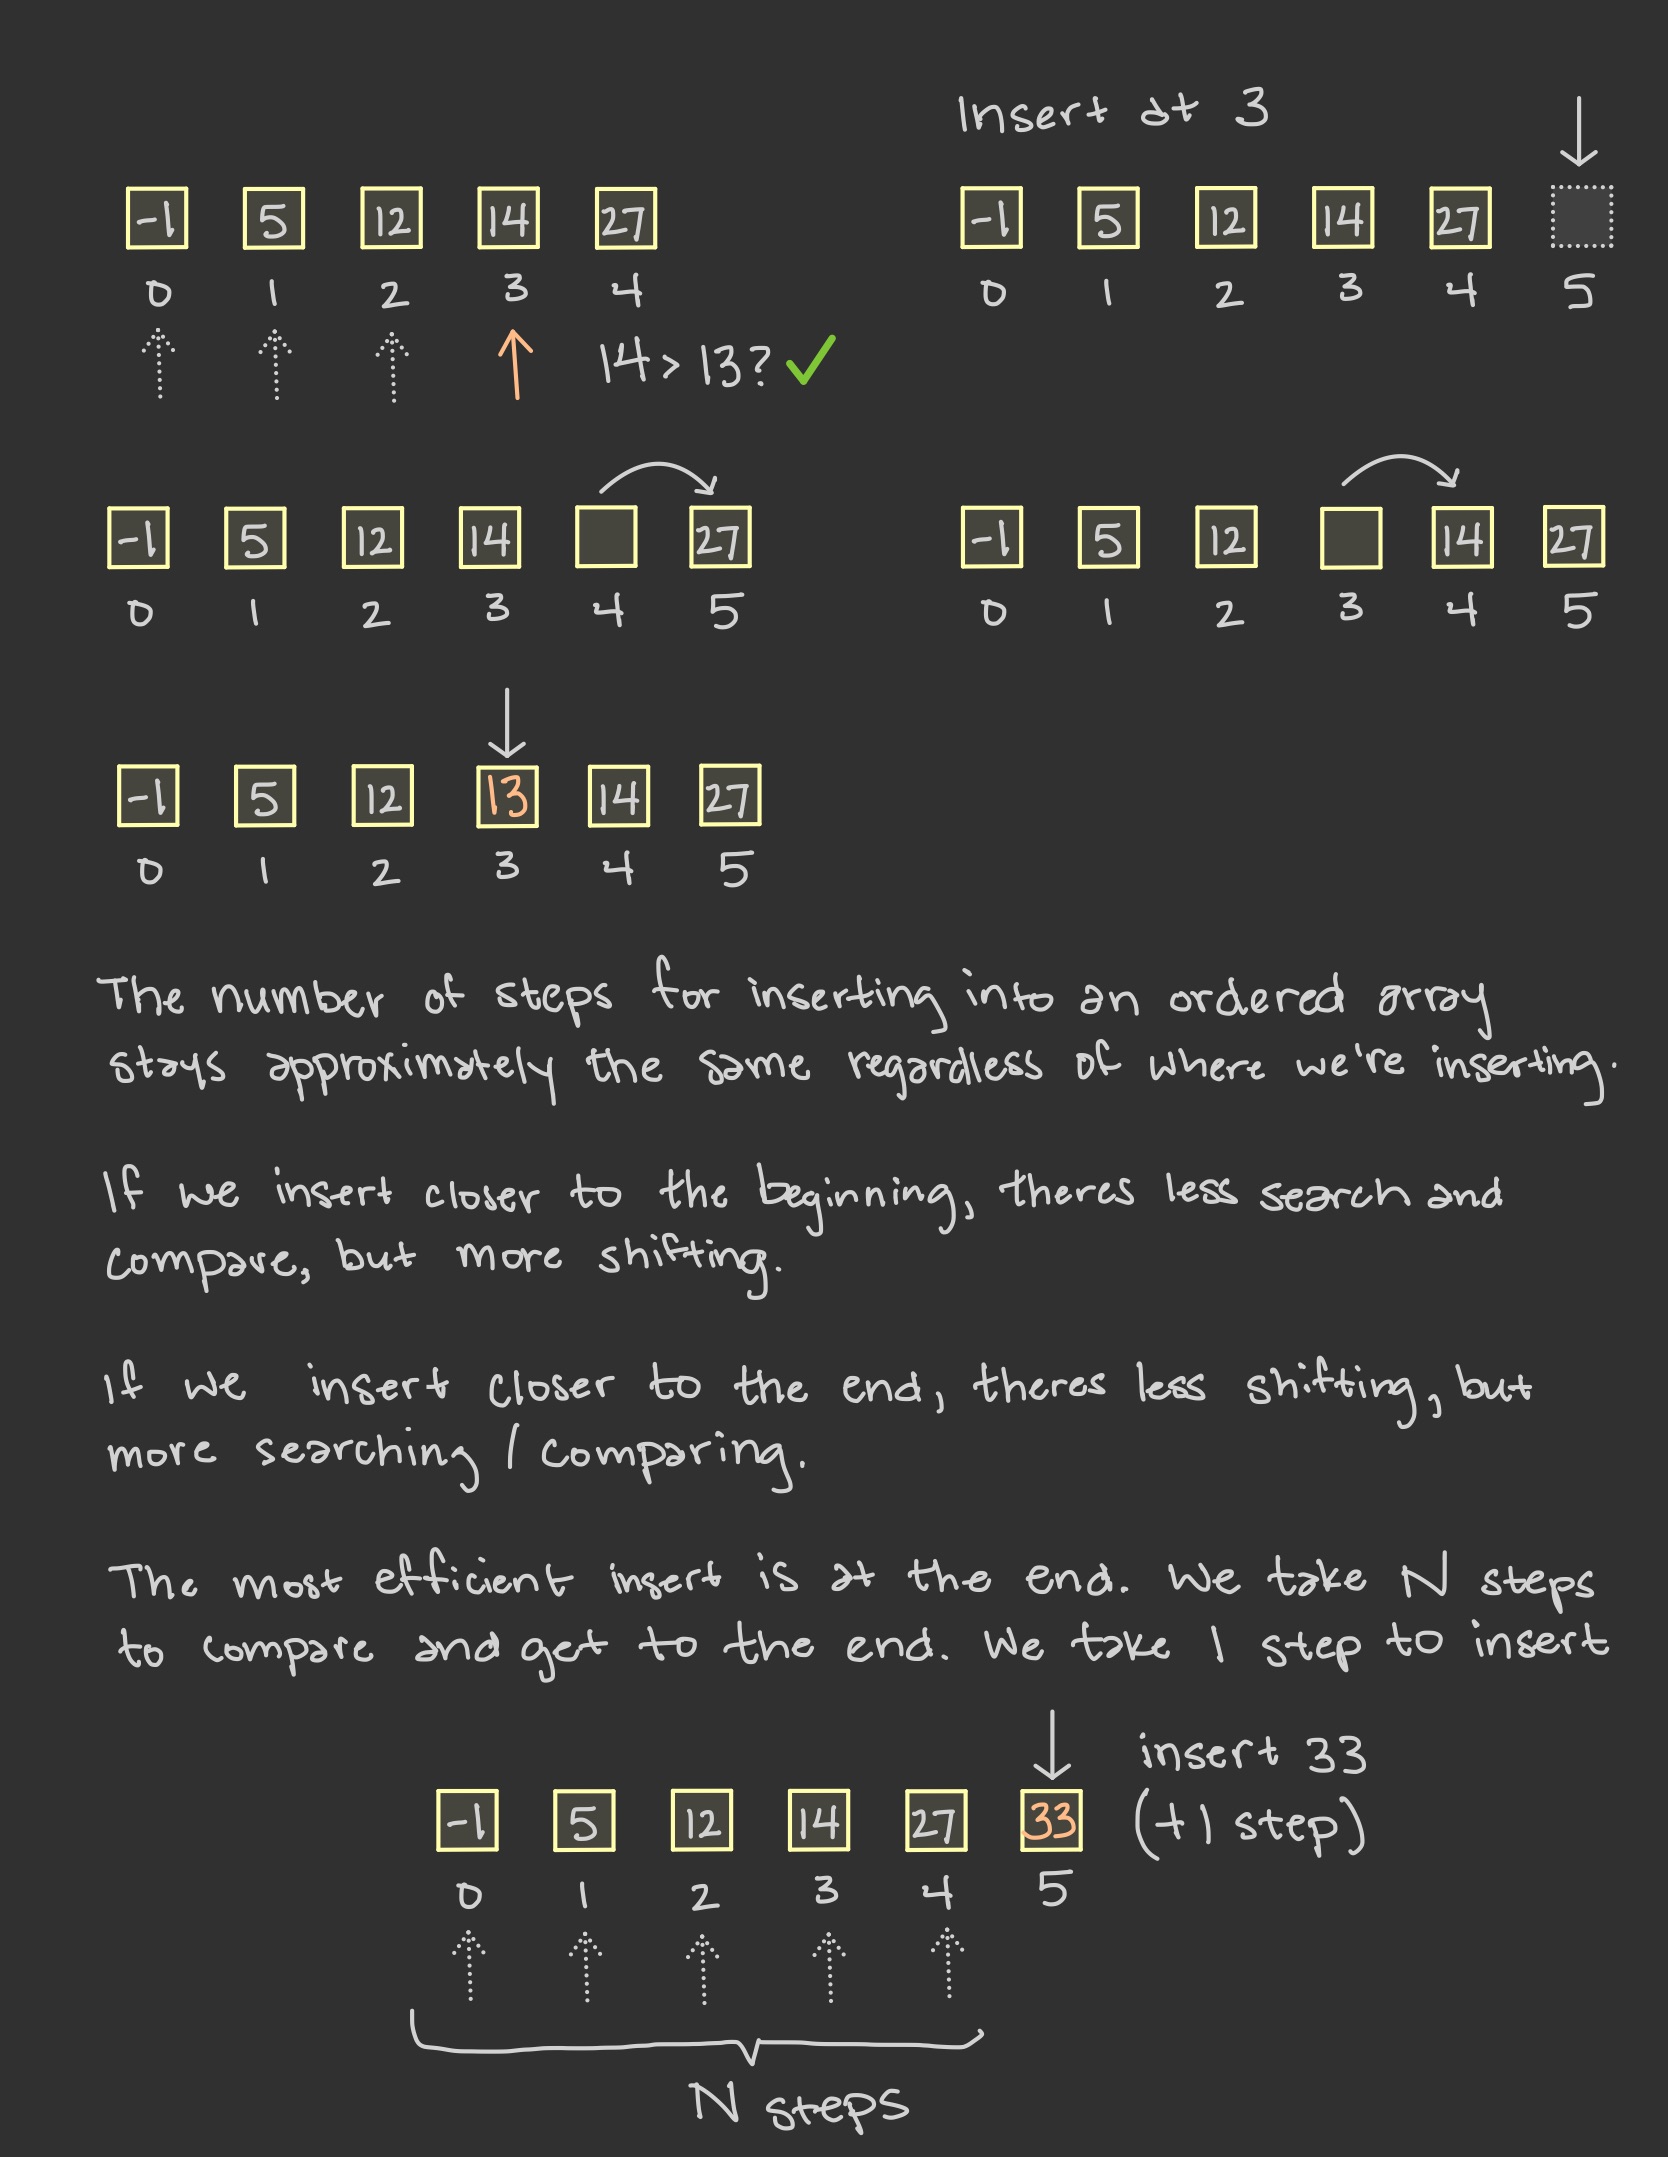 Insert at 3
-1 5 12 14 27
0 1 2 3 4
14 > 13? ✓
-1 5 12 14 27
0 1 2 3 4 5
-1 5 12 14 27
0 1 2 3 4 5
-1 5 12 14 27
0 1 2 3 4 5
-1 5 12 13 14 27
0 1 2 3 4 5
The number of steps for inserting into an ordered array
stays approximately the same regardless of where we're inserting.
If we insert closer to the beginning, theres less search and
compare, but more shifting.
If we insert closer to the end, theres less shifting, but
more searching / comparing.
The most efficient insert is at the end. We take N steps
to compare and get to the end. We take 1 step to insert
insert 33
(+1 step)
-1 5 12 14 27 33
0 1 2 3 4 5
N steps